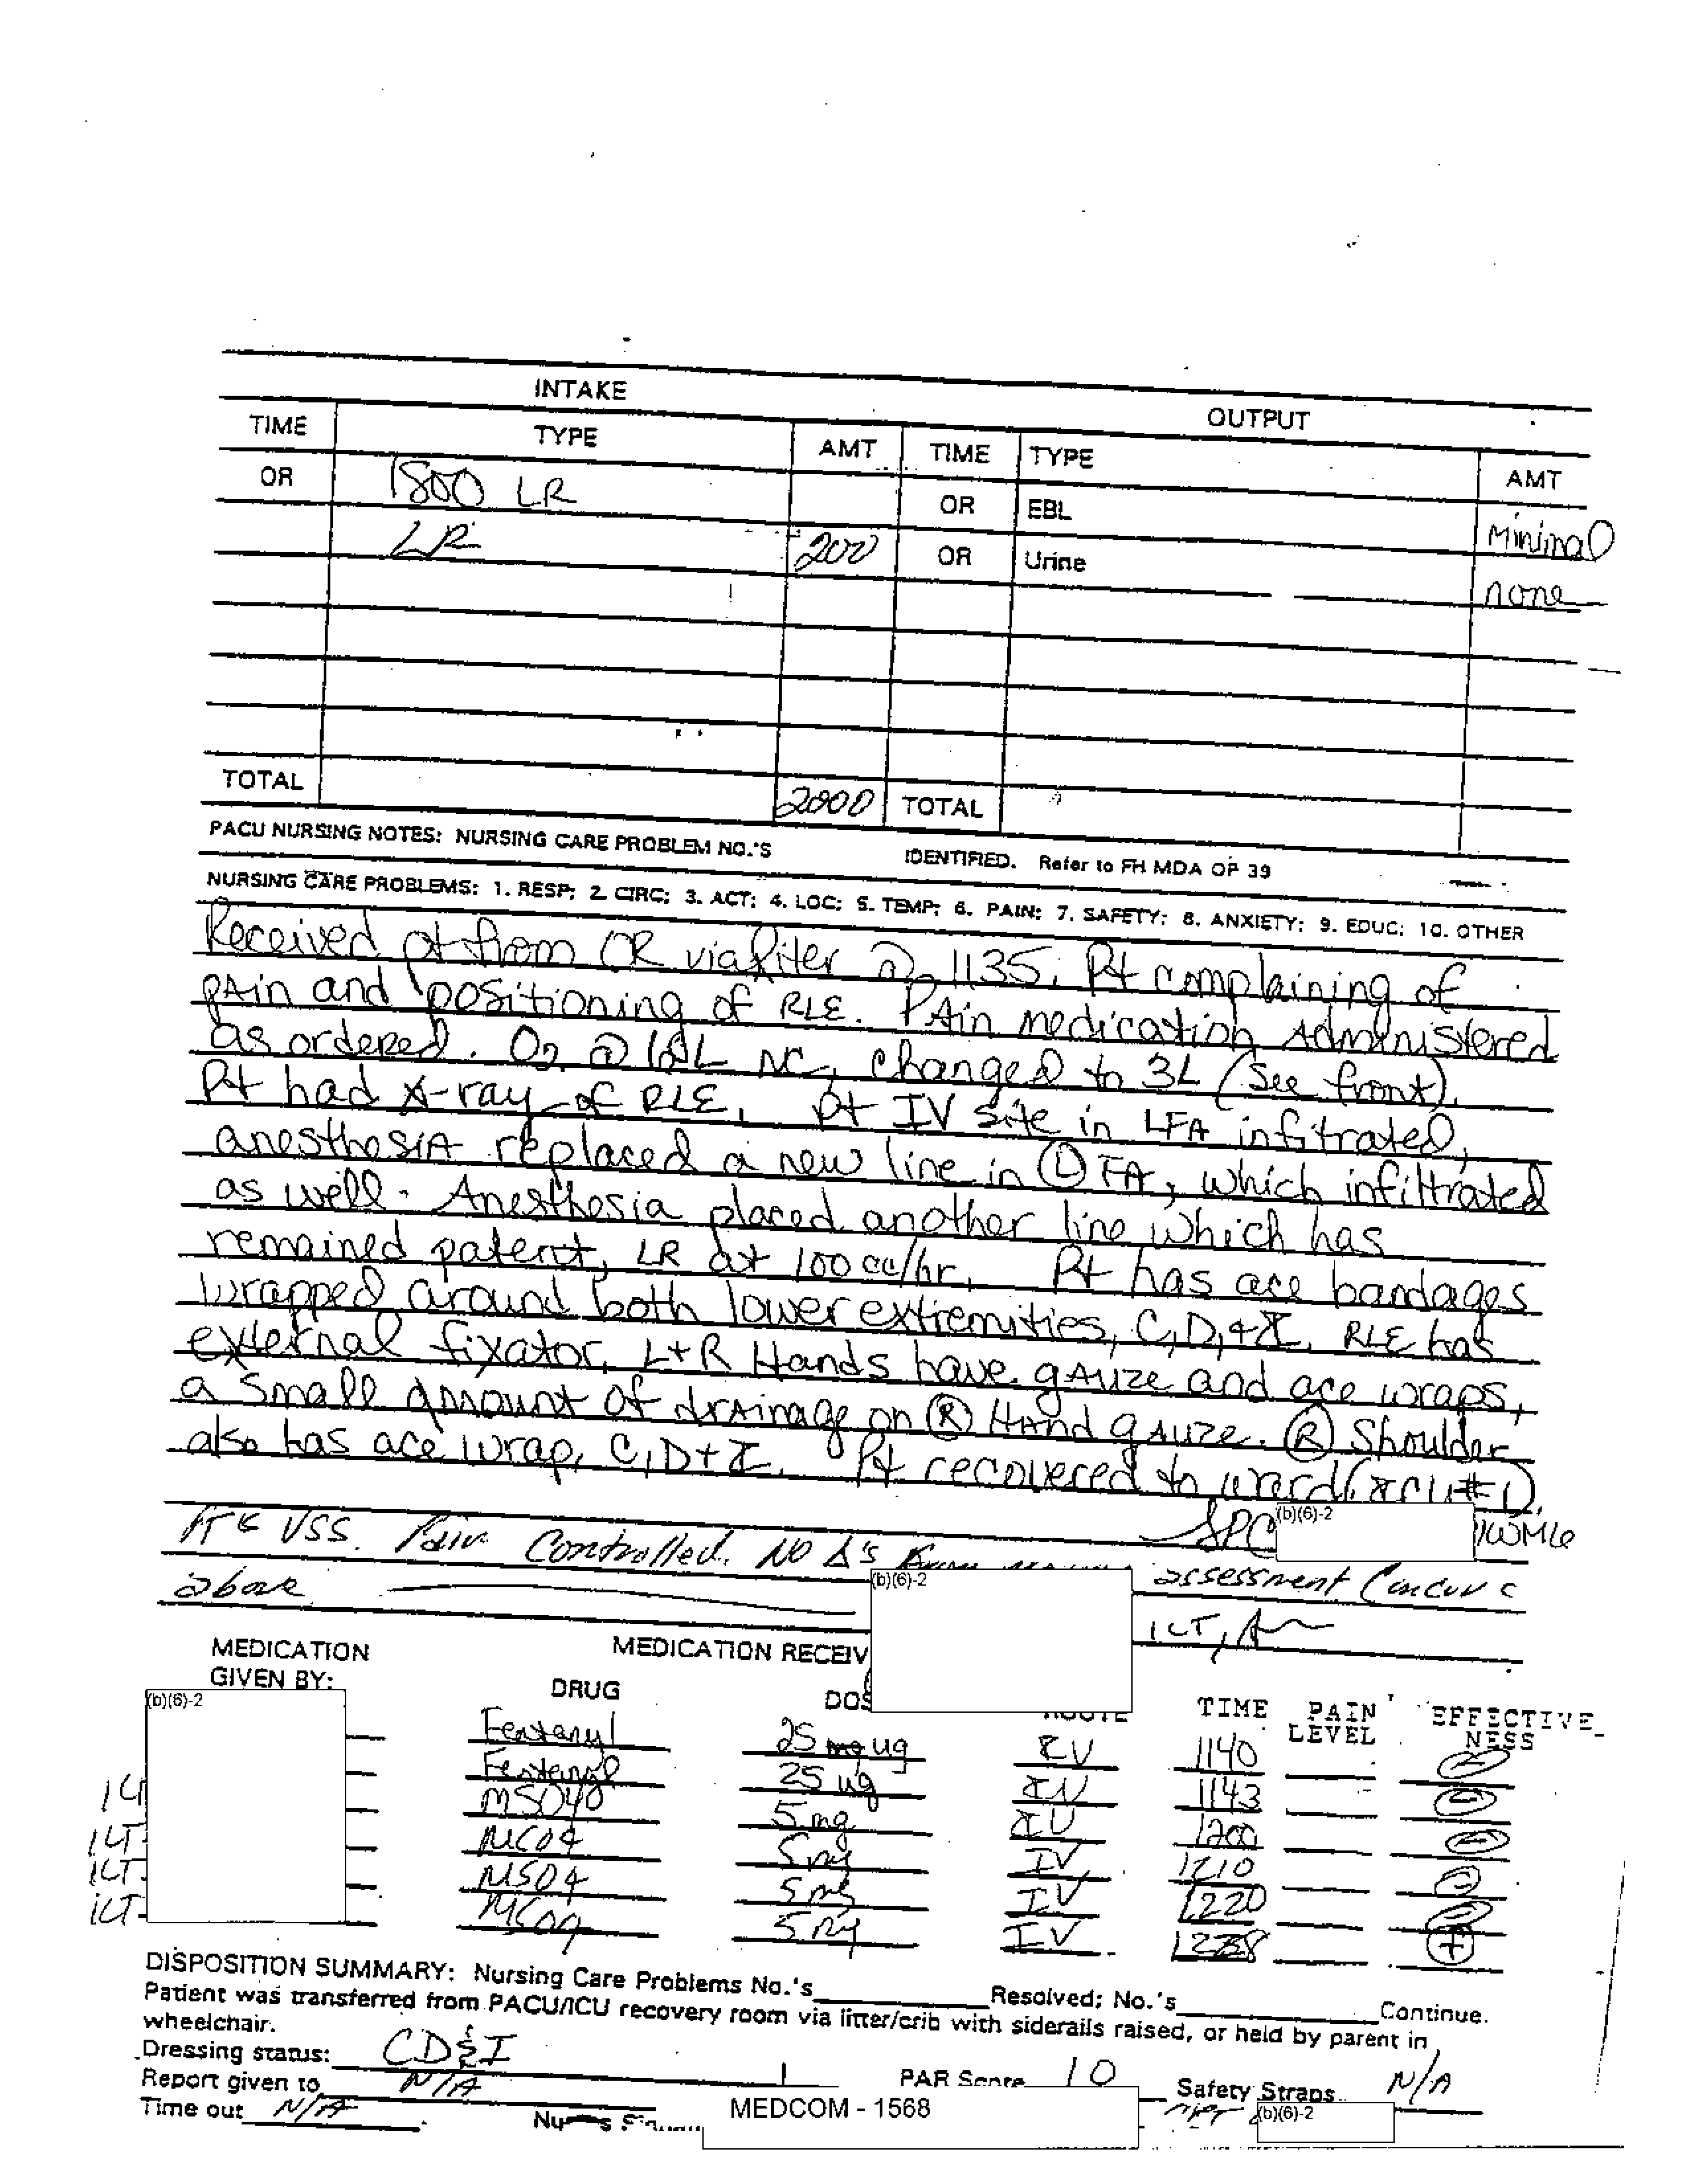 INTAKE OUTPUT
TIME TYPE AMT TIME TYPE AMT
OR 1800 LR OR EBL Minimal
LR 200 OR Urine none
TOTAL 2000 TOTAL
PACU NURSING NOTES: NURSING CARE PROBLEM NO.'S IDENTIFIED. Refer to FH MDA OP 39
NURSING CARE PROBLEMS: 1. RESP; 2. CIRC; 3. ACT; 4. LOC; 5. TEMP; 6. PAIN; 7. SAFETY; 8. ANXIETY; 9. EDUC; 10. OTHER
Received pt from OR via liter @ 1135. Pt complaining of
pain and positioning of RLE. Pain medication administered
as ordered. O2 @ L NC, changed to 3L (See front).
Pt had x-ray of RLE. Pt IV site in LFA infitrated,
anesthesia replaced a new line in Ⓛ FA, which infiltrated
as well. Anesthesia placed another line which has
remained patent, LR at 100 cc/hr. Pt has ace bandages
wrapped around both lower extremities, C,D,+I. RLE has
external fixator. L+R Hands have gauze and ace wraps,
a small amount of drainage on Ⓡ Hand gauze. Ⓡ Shoulder
also has ace wrap, C,D+I. Pt recovered to ward (ICU#1).
SPC (b)(6)-2 91WM6
VSS. Pain Controlled. NO Δ's from assessment Concur c
above (b)(6)-2
1LT, AN
MEDICATION GIVEN BY: MEDICATION RECEIV
(b)(6)-2 DRUG DOS TIME PAIN LEVEL EFFECTIVE_NESS
Fentanyl 25 ug IV 1140 ⊖
Fentanyl 25 ug IV 1143 ⊖
1LT MSO4 5 mg IV 1200 ⊖
1LT MSO4 5mg IV 1210 ⊖
1LT MSO4 5mg IV 1220 ⊖
1LT MSO4 5mg IV ⊕
DISPOSITION SUMMARY: Nursing Care Problems No.'s Resolved; No.'s Continue.
Patient was transferred from PACU/ICU recovery room via litter/crib with siderails raised, or held by parent in
wheelchair.
Dressing status: CD&I
Report given to N/A PAR Score 10 Safety Straps N/A
Time out N/A MEDCOM - 1568 (b)(6)-2